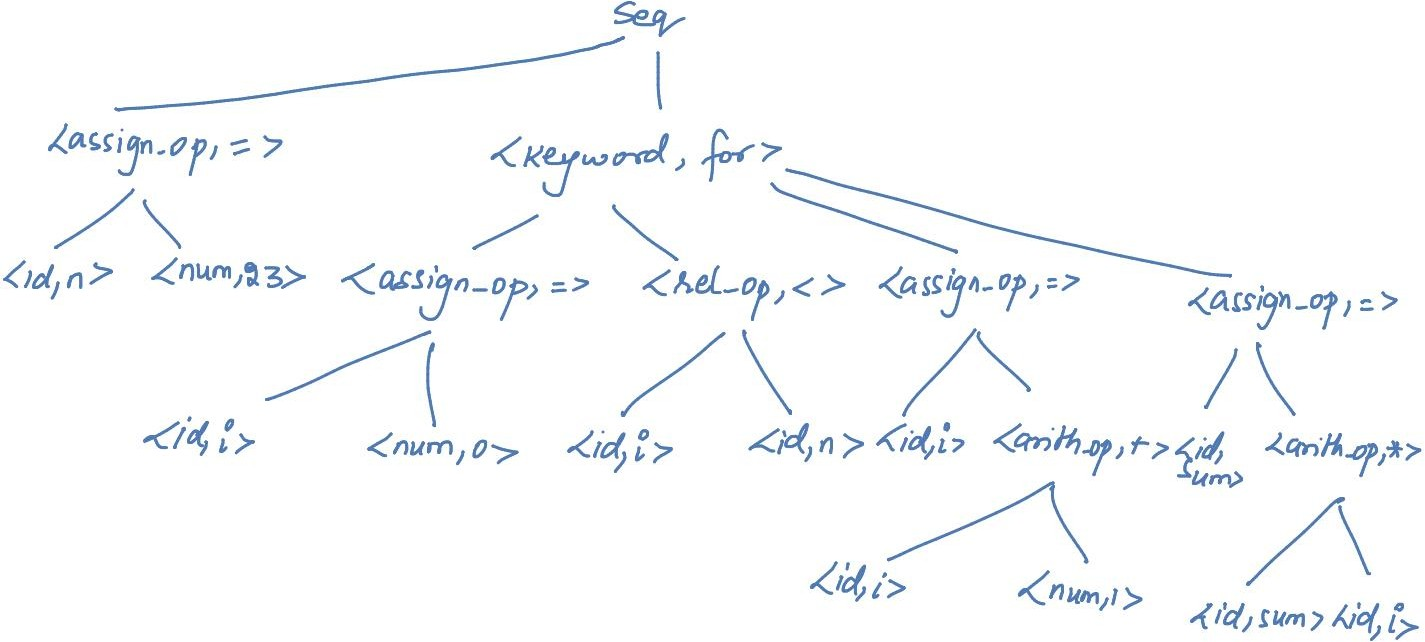 Seq
<assign_op, = >
<keyword, for>
<id, n>
<num, 23>
<assign_op, = >
<rel_op, < >
<assign_op, = >
<assign_op, = >
<id, i>
<num, 0>
<id, i>
<id, n>
<id, i>
<arith_op, + >
<id,
sum>
<arith_op, *>
<id, i>
<num, 1>
<id, sum>
<id, i>